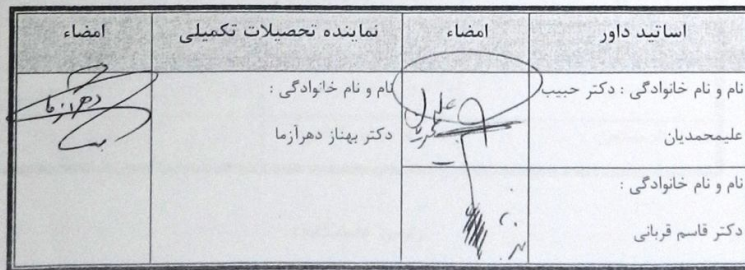 اساتید داور	امضاء	نماینده تحصیلات تکمیلی	امضاء
نام و نام خانوادگی : دکتر حبیب
علیمحمدیان
نام و نام خانوادگی :
دکتر بهناز دهرآزما
دهرآزما
نام و نام خانوادگی :
دکتر قاسم قربانی